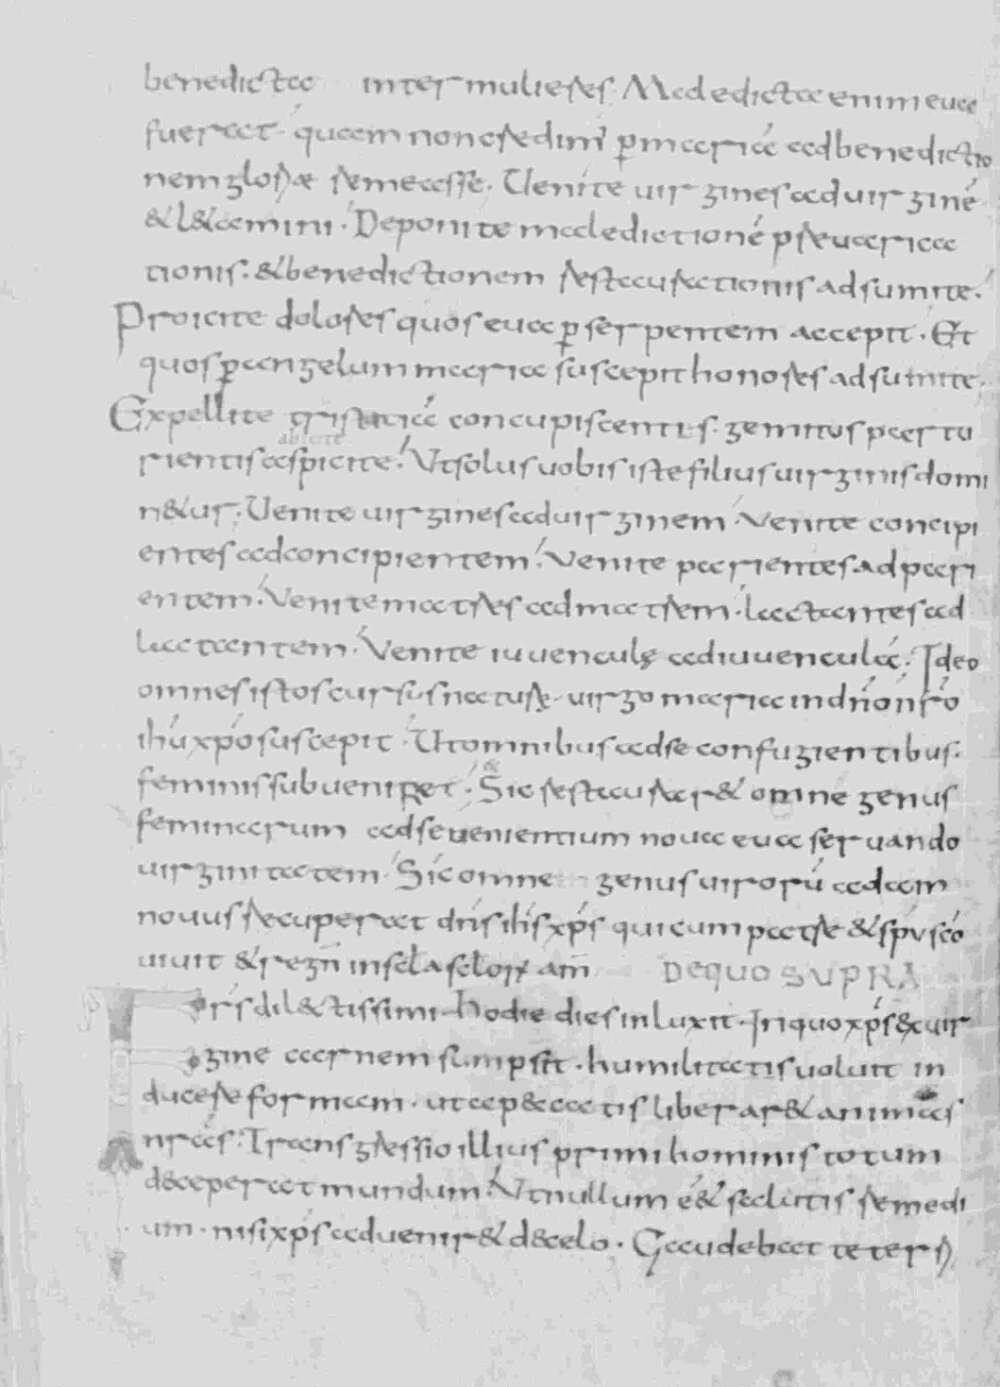 benedicta inter mulieres. Maledicta enim eua
fuerat. quam non credim' p̱ maria ad benedictio
nem gloriæ remeasse. Uenite uirgines ad uirginē
&l&amini. Deponite maledictionē pręuarica
tionis. & benedictionem restaurationis adsumite.
Proicite dolores quos eua p̱ serpentem accepit. Et
quos p̱ angelum maria suscepit honores adsumite.
Expellite tristitiā concupiscentis. gemitus partu
rientis aspicite. Ut solus uobis iste filius uirginis domi
n&ur. Uenite uirgines ad uirginem. Venite concipi
entes ad concipientem. Venite parientes ad pari
entem. Venite matres ad matrem. lactantes ad
lactantem. Venite iuuenculę ad iuuenculā. Ideo
omnes istos cursus naturę. uirgo maria in dnō nrō
ihū xpō suscepit. Ut omnibus ad se confugientibus.
feminis subueniret. Sic restaurar& omne genus
feminarum ad se uenientium noua eua seruando
uirginitatem. Sic omne genus uirorū adam
nouus recuperat dns ihs xps qui cum patre & spu scō
uiuit & regn̄ in scla sclorꝝ am̄ DE QUO SUPRA
Frs dil&tissimi. Hodie dies inluxit. In quo xps ex uir
gine carnem sumpsit. humilitatis uoluit in
ducere formam. ut a p&catis liberar& animas
nras. Transgressio illius primi hominis totum
deceperat mundum. Ut nullum ē& salutis remedi
um. nisi xps aduenir& de celo. Gaudebat te terꝝ